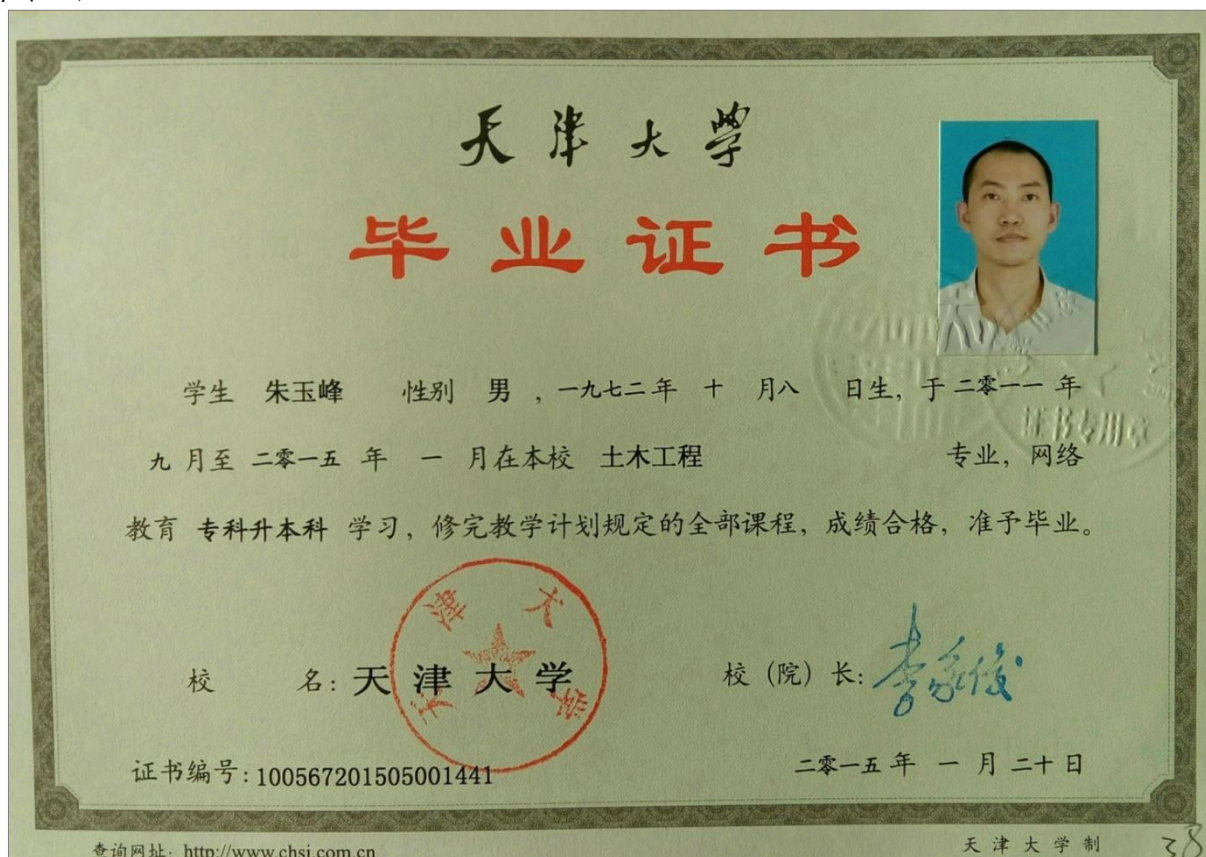 天津大学
毕业证书
学生 朱玉峰 性别 男 ，一九七二年 十 月八 日生，于二零一一年
九 月至 二零一五 年 一 月在本校 土木工程 专业，网络
教育 专科升本科 学习，修完教学计划规定的全部课程，成绩合格，准予毕业。
天津大学
证书专用章
校 名：天津大学
校（院）长：李家俊
证书编号：100567201505001441
二零一五年 一 月 二十日
查询网址：http://www.chsi.com.cn
天津大学制
38